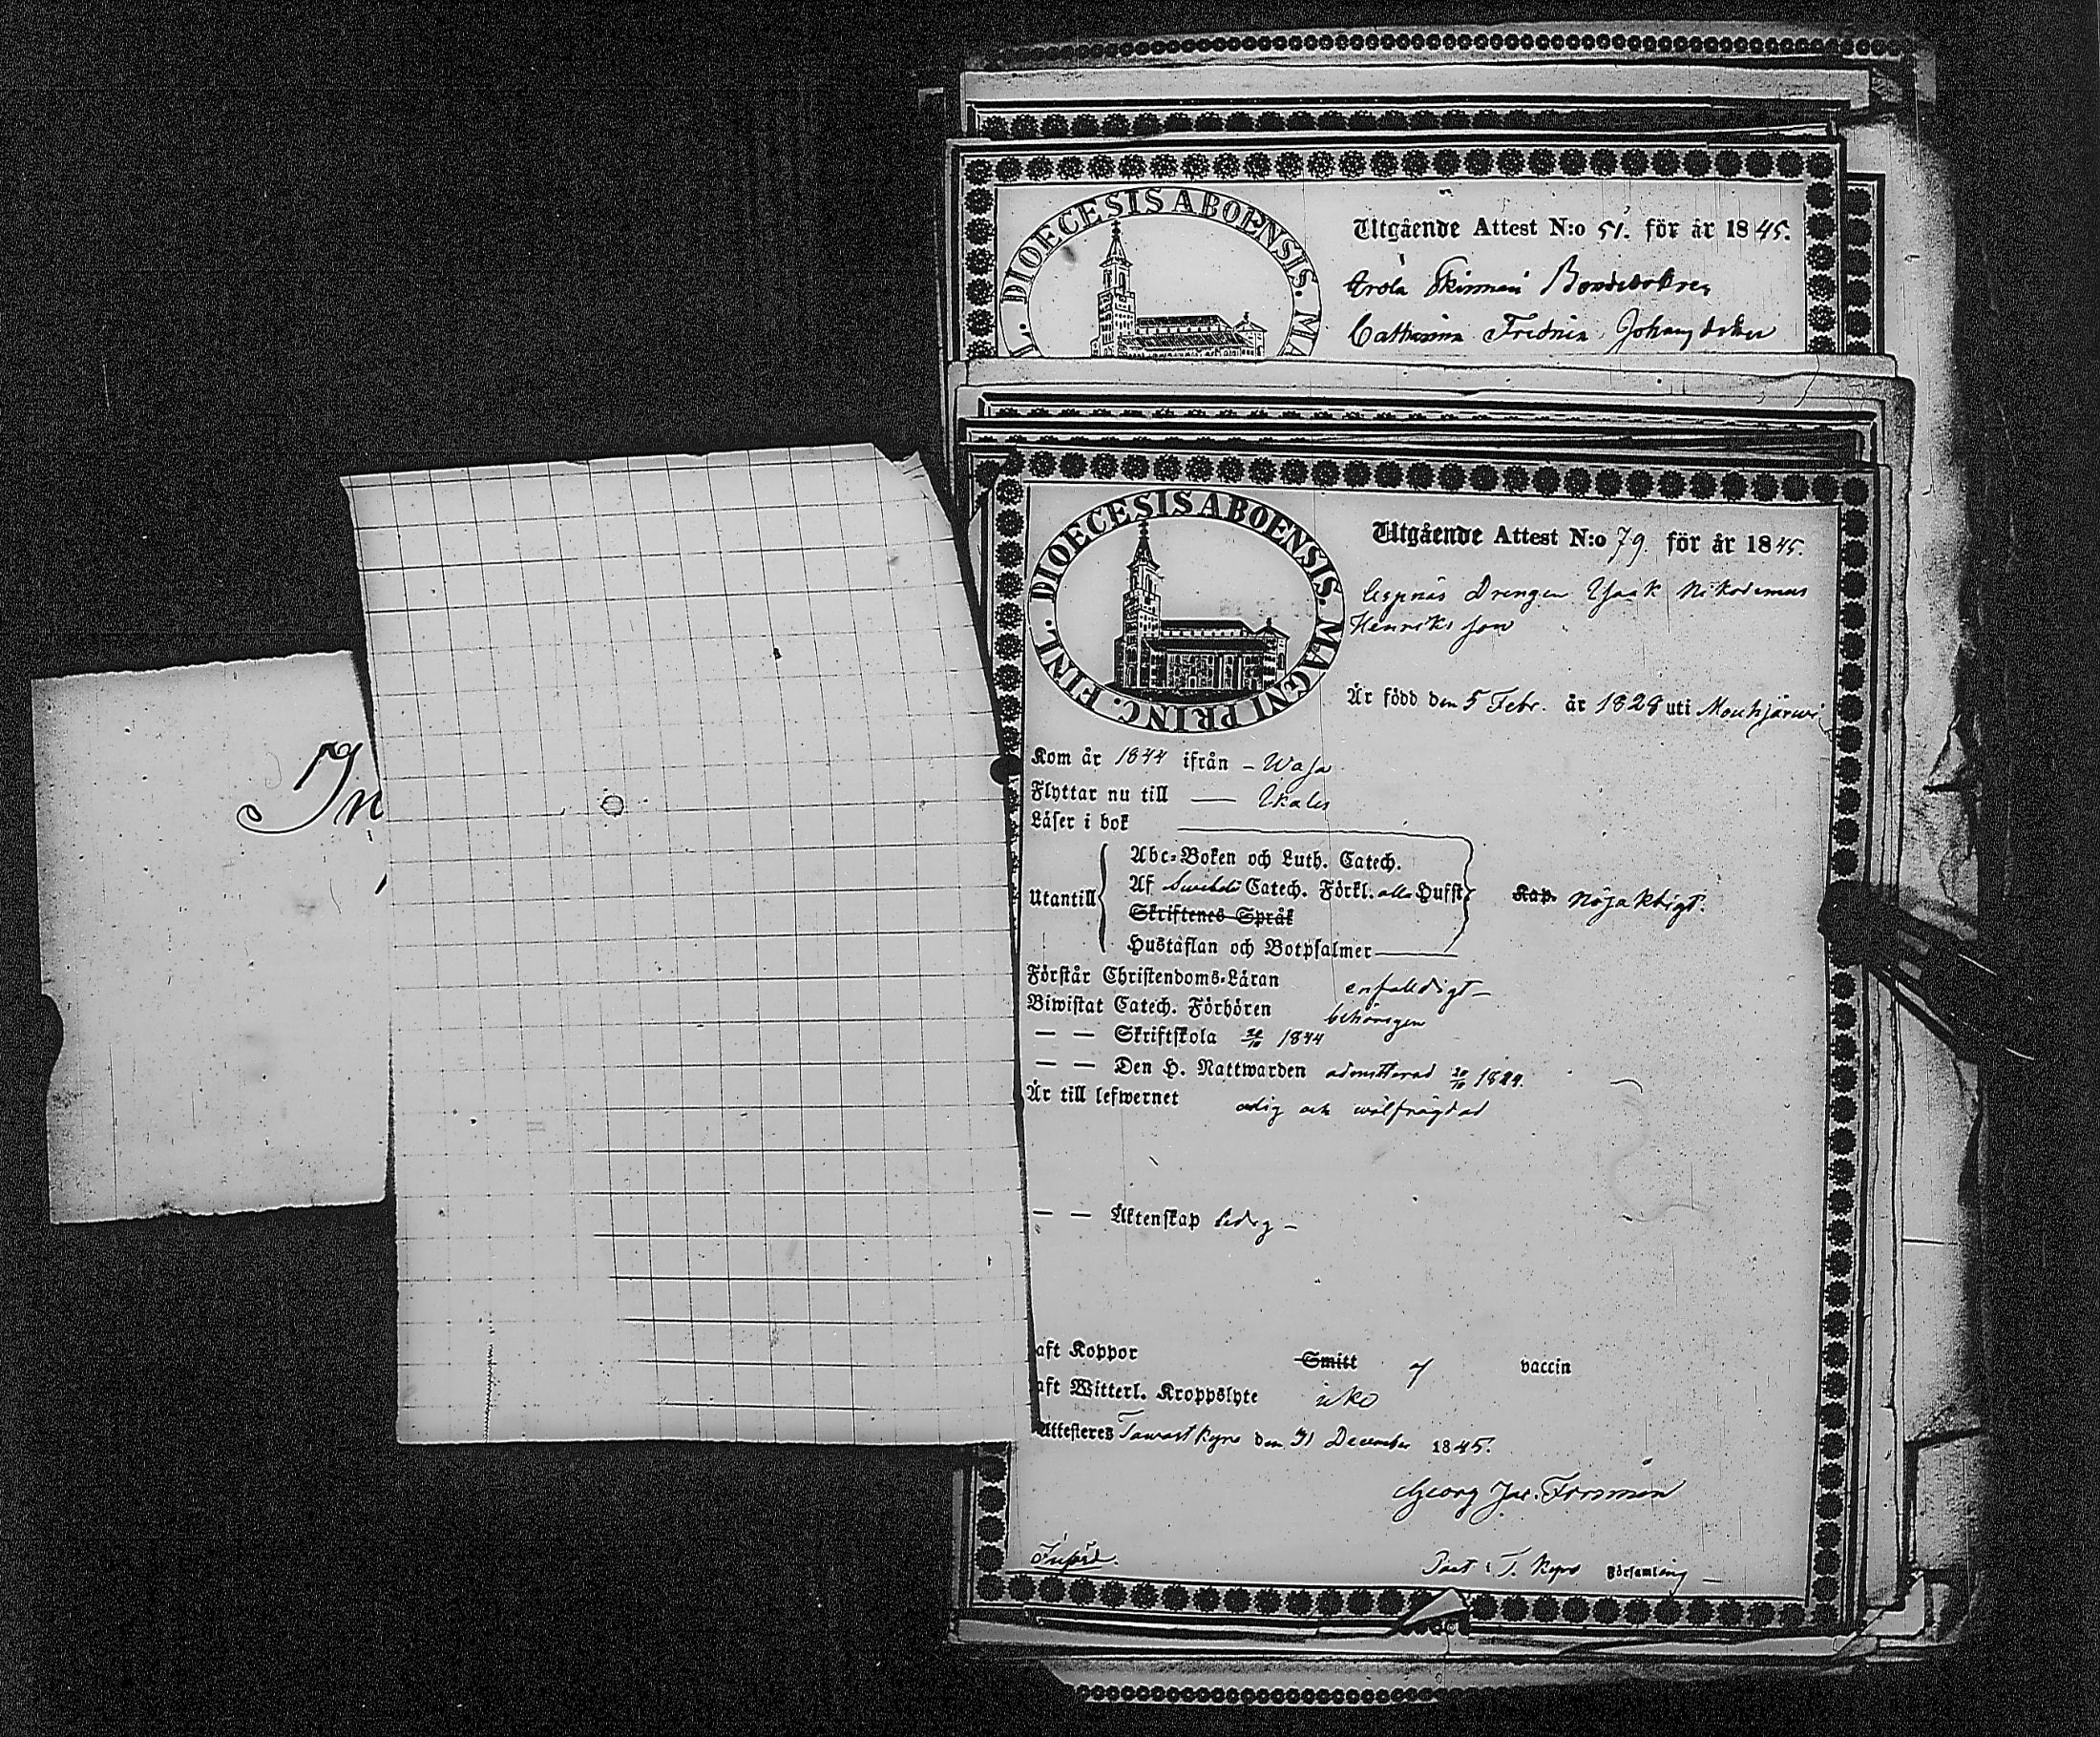 DIOECESIS ABOENSIS. MA
Utgående Attest N:o 51. för år 1845.
Catharina Fredrica Johansdotter
In
DIOECESIS ABOENSIS. MAGNI PRINC. FINL.
Utgående Attest N:o 79. för år 1845.
Drengen Isaak Nikodemus
Henriksson
Är född den 5 Febr. år 1828 uti Mouhijärwi
Kom år 1844 ifrån – Wasa
Flyttar nu till — Ikalis
Läser i bok
Abc-Boken och Luth. Catech.
Utantill Af Swebelii Catech. Förkl. alla Hufst Kap. nöjaktigt.
Skriftenes Språk
Hustaflan och Botpsalmer
Förstår Christendoms-Läran enfaldigt –
Biwistat Catech. Förhören behörigen
— — Skriftskola 1844
— — Den H. Nattwarden admitterad 1844.
Är till lefwernet och wälfrägdad
— — Äktenskap ledig –
aft Koppor Smitt vaccin
aft Witterl. Kroppslyte icke
Attesteres Tawastkyro den 31 December 1845.
Georg Jac. Forsman
Past i T. Kyro Församling
Införd.